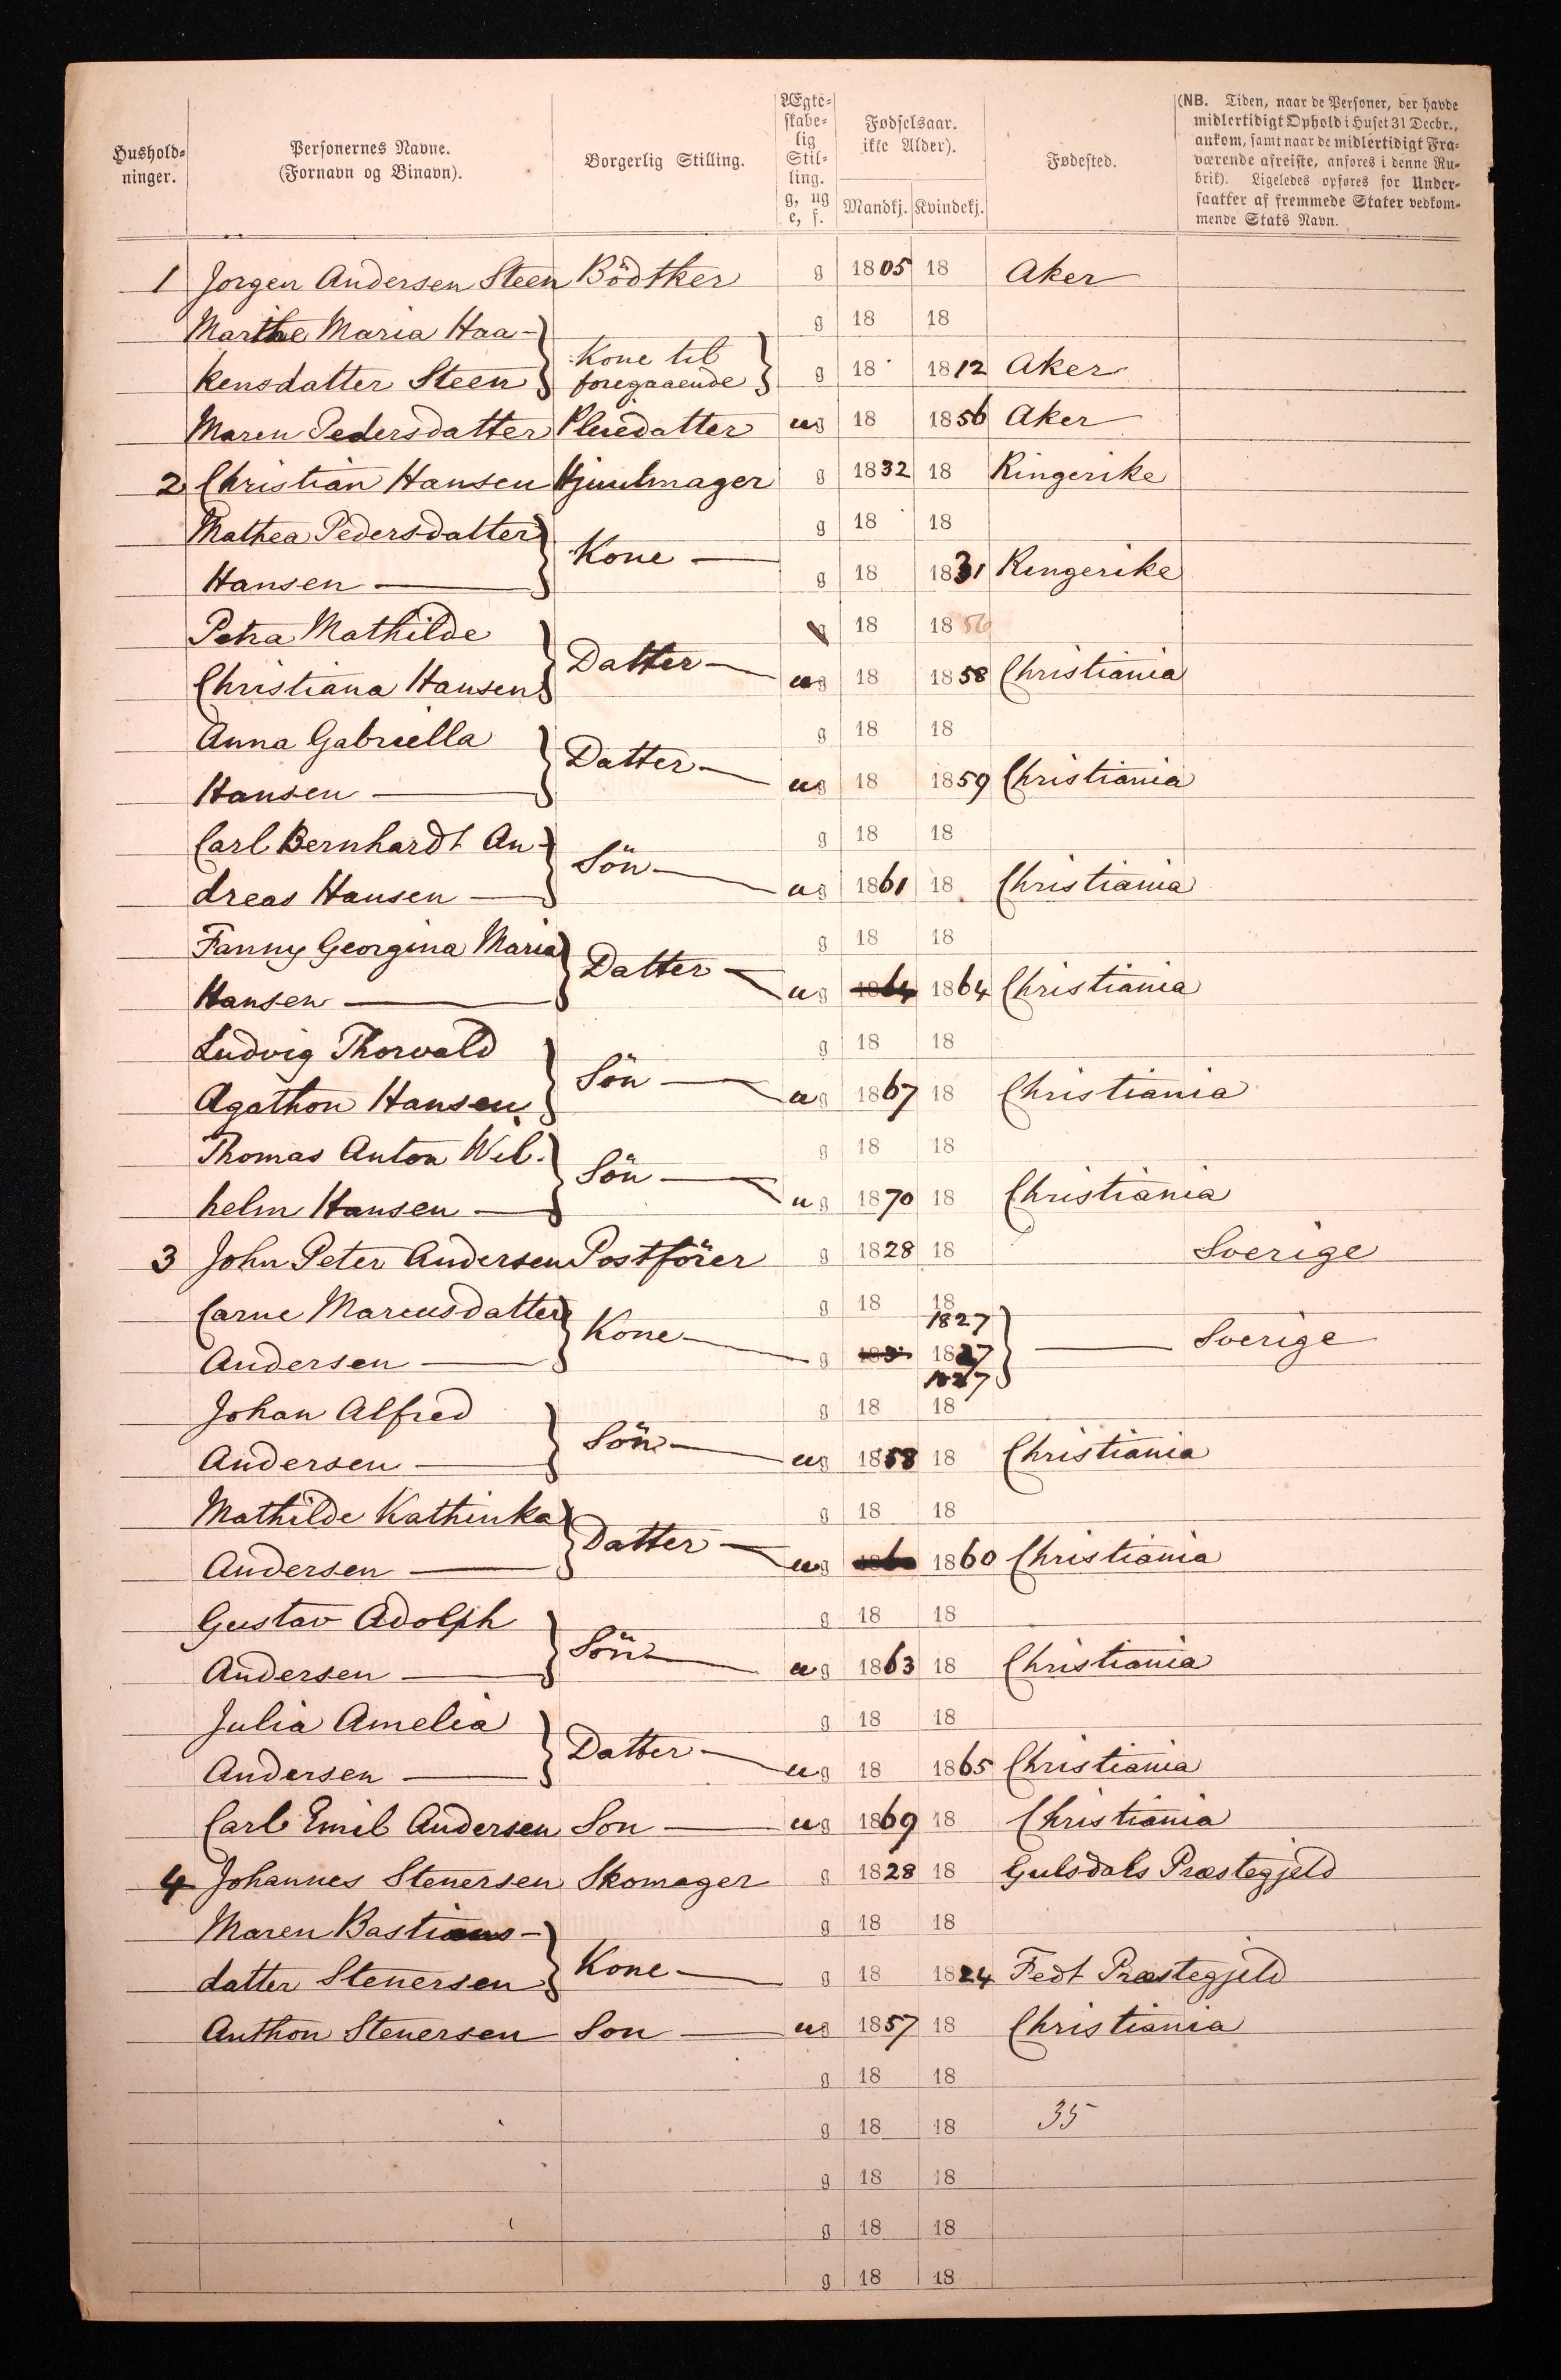 Hushold-
ninger.
Personernes Navne.
(Fornavn og Binavn).
Borgerlig Stilling.
Ægte-
skabe-
lig
Stil-
ling.
g, ug
e, f.
Fødselsaar.
ikke Alder).
Mandkj. Kvindekj.
Fødested.
(NB. Tiden, naar de Personer, der havde
midlertidigt Ophold i Huset 31 Decbr.,
ankom, samt naar de midlertidigt Fra-
værende afreiste, anføres i denne Ru-
brik). Ligeledes opføres for Under-
saatter af fremmede Stater vedkom-
mende Stats Navn.
1 Jorgen Andersen Steen Bödtker g 1805 18 Aker
Marthe Maria Haa- g 18 18
kensdatter Steen Kone til foregaaende g 18 1812 Aker
Maren Pedersdatter Pleiedatter ug 18 1856 Aker
2 Christian Hansen Hjuulmager g 1832 18 Ringerike
Mathea Pedersdatter g 18 18
Hansen Kone g 18 1831 Ringerike
Petra Mathilde g 18 1856
Christiana Hansen Datter ug 18 1858 Christiania
Anna Gabriella g 18 18
Hansen Datter ug 18 1859 Christiania
Carl Bernhardt An- g 18 18
dreas Hansen Sön ug 1861 18 Christiania
Fanny Georgina Maria g 18 18
Hansen Datter ug 1864 1864 Christiania
Ludvig Thorvald g 18 18
Agathon Hansen Sön ug 1867 18 Christiania
Thomas Anton Wil- g 18 18
helm Hansen Sön ug 1870 18 Christiania
3 John Peter Andersen Postförer g 1828 18 Sverige
Carne Marcusdatter g 18 18
1827
Andersen Kone g 183 1827 Sverige
1827
Johan Alfred g 18 18
Andersen Sön ug 1858 18 Christiania
Mathilde Kathinka g 18 18
Andersen Datter ug 1860 1860 Christiania
Gustav Adolph g 18 18
Andersen Sön ug 1863 18 Christiania
Julia Amelia g 18 18
Andersen Datter ug 18 1865 Christiania
Carl Emil Andersen Son ug 1869 18 Christiania
4 Johannes Stenersen Skomager g 1828 18 Gulsdals Præstegjeld
Maren Bastians- g 18 18
datter Stenersen Kone g 18 1824 Fedt Præstegjeld
Anthon Stenersen Son ug 1857 18 Christiania
g 18 18
g 18 18 35
g 18 18
g 18 18
g 18 18